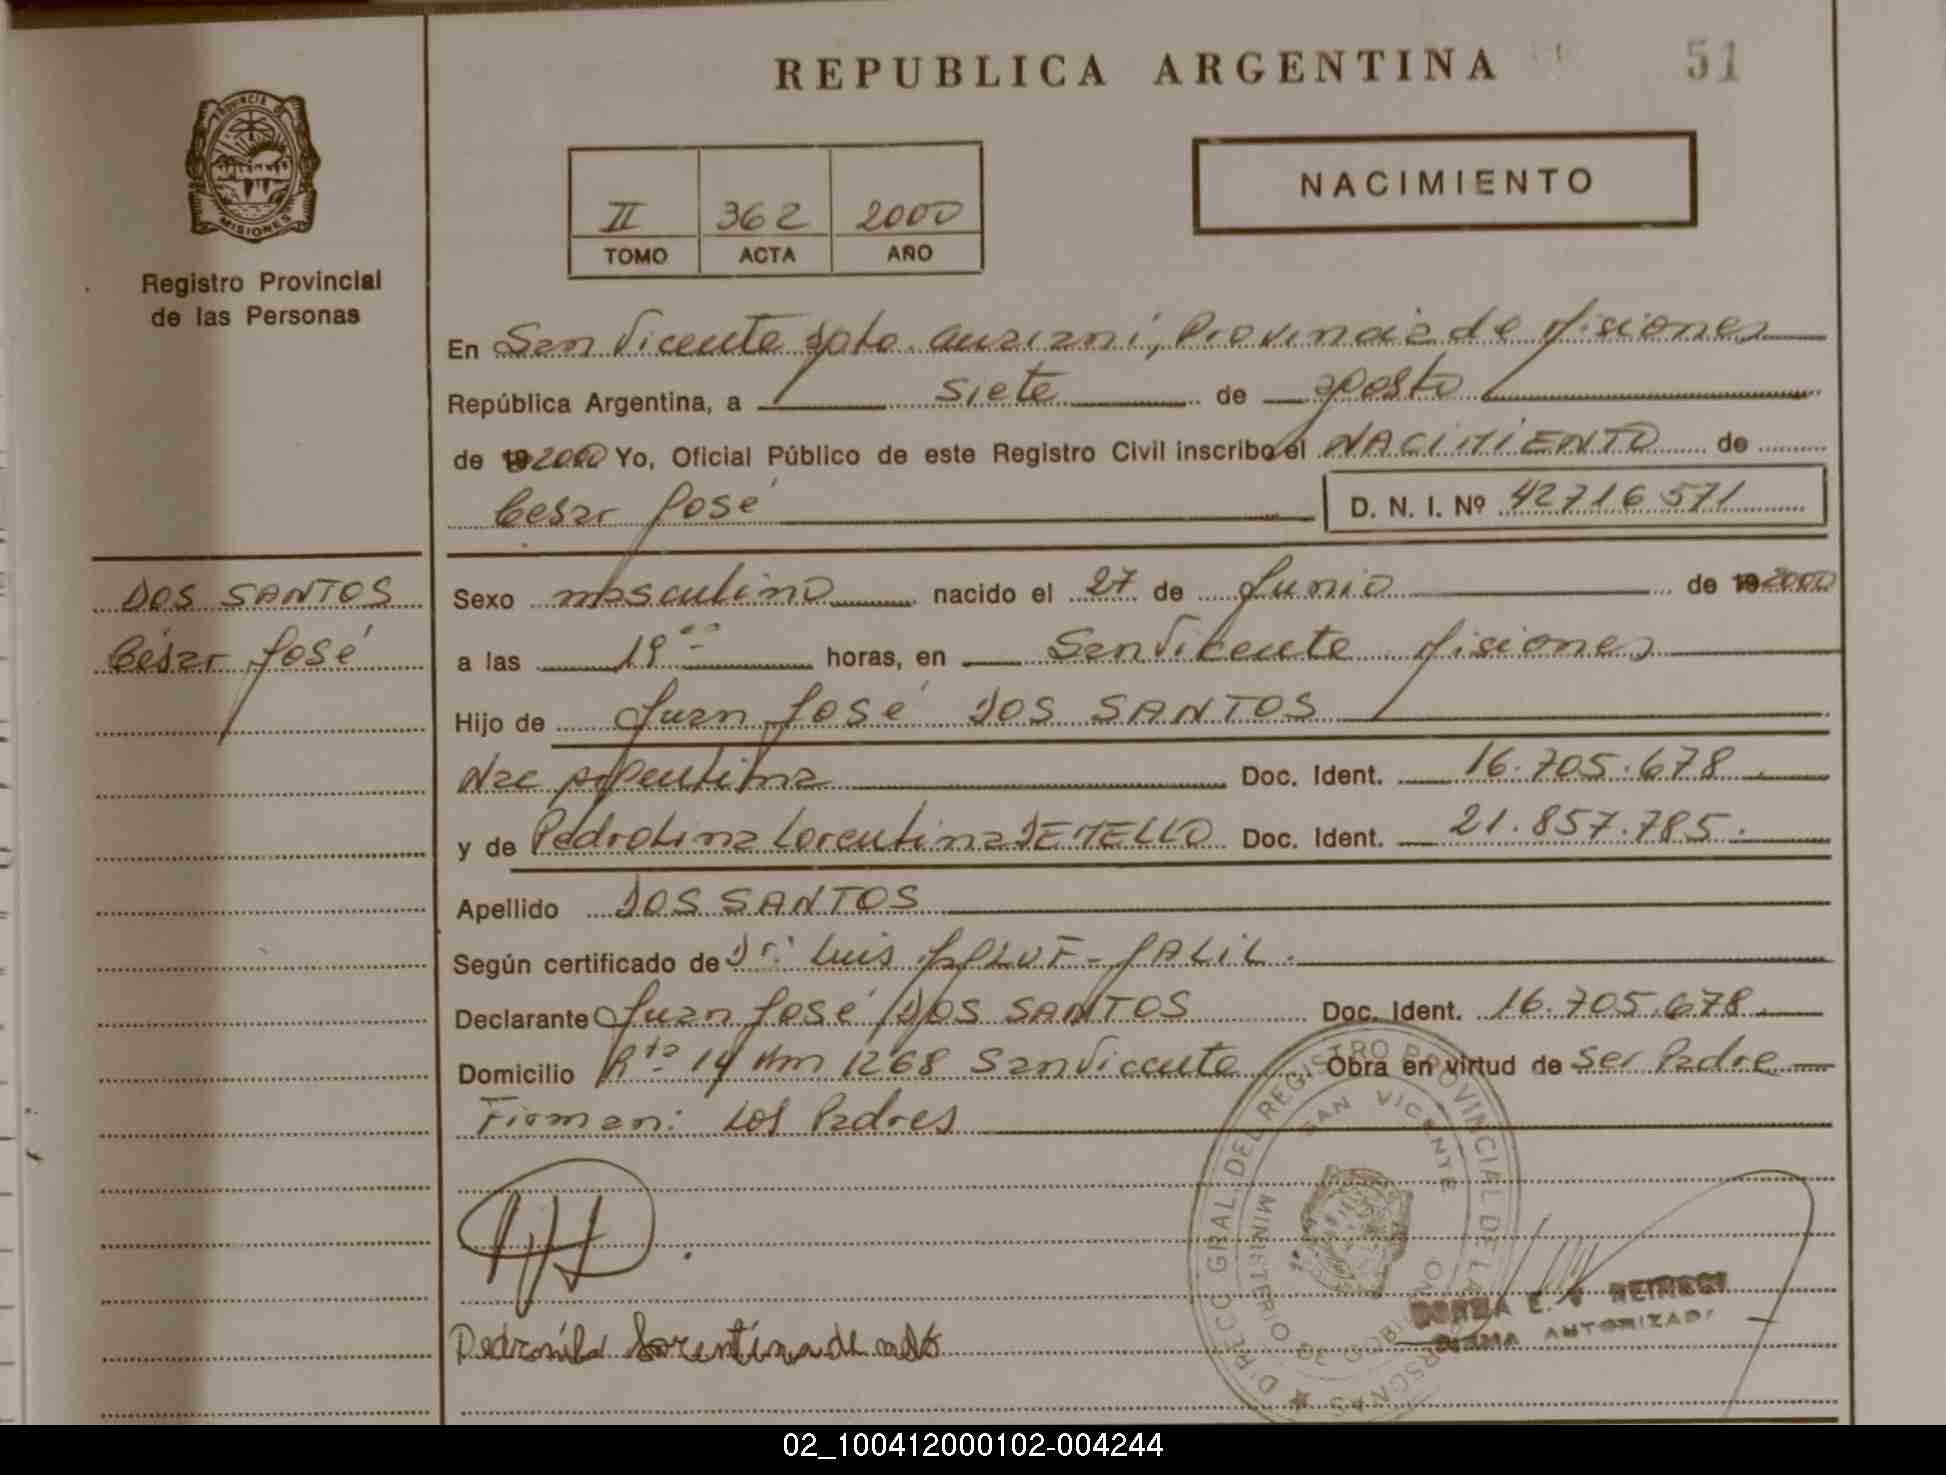 REPUBLICA ARGENTINA
51
PROVINCIA DE
MISIONES
Registro Provincial
de las Personas
II 362 2000
TOMO ACTA AÑO
NACIMIENTO
En San Vicente Dpto. Guaraní, Provincia de Misiones
República Argentina, a siete de agosto
de 19 2000 Yo, Oficial Público de este Registro Civil inscribo el NACIMIENTO de
Cesar José D. N. I. Nº 42716571
DOS SANTOS
César José
Sexo masculino nacido el 27 de Junio de 19 2000
a las 19 00 horas, en San Vicente Misiones
Hijo de Juan José DOS SANTOS
Nac argentina Doc. Ident. 16.705.678
y de Lorentina DE MELLO Doc. Ident. 21.857.785.
Apellido DOS SANTOS
Según certificado de Dr. Luis JALIL.
Declarante Juan José DOS SANTOS Doc. Ident. 16.705.678
Domicilio Rta 14 Km 1268 San Vicente Obra en virtud de Ser Padre
Firman: Los Padres
DIRECC. GRAL. DEL REGISTRO PROVINCIAL DE LAS PERSONAS
SAN VICENTE
MINISTERIO DE
Lorentina de
FIRMA AUTORIZAD
02_100412000102-004244